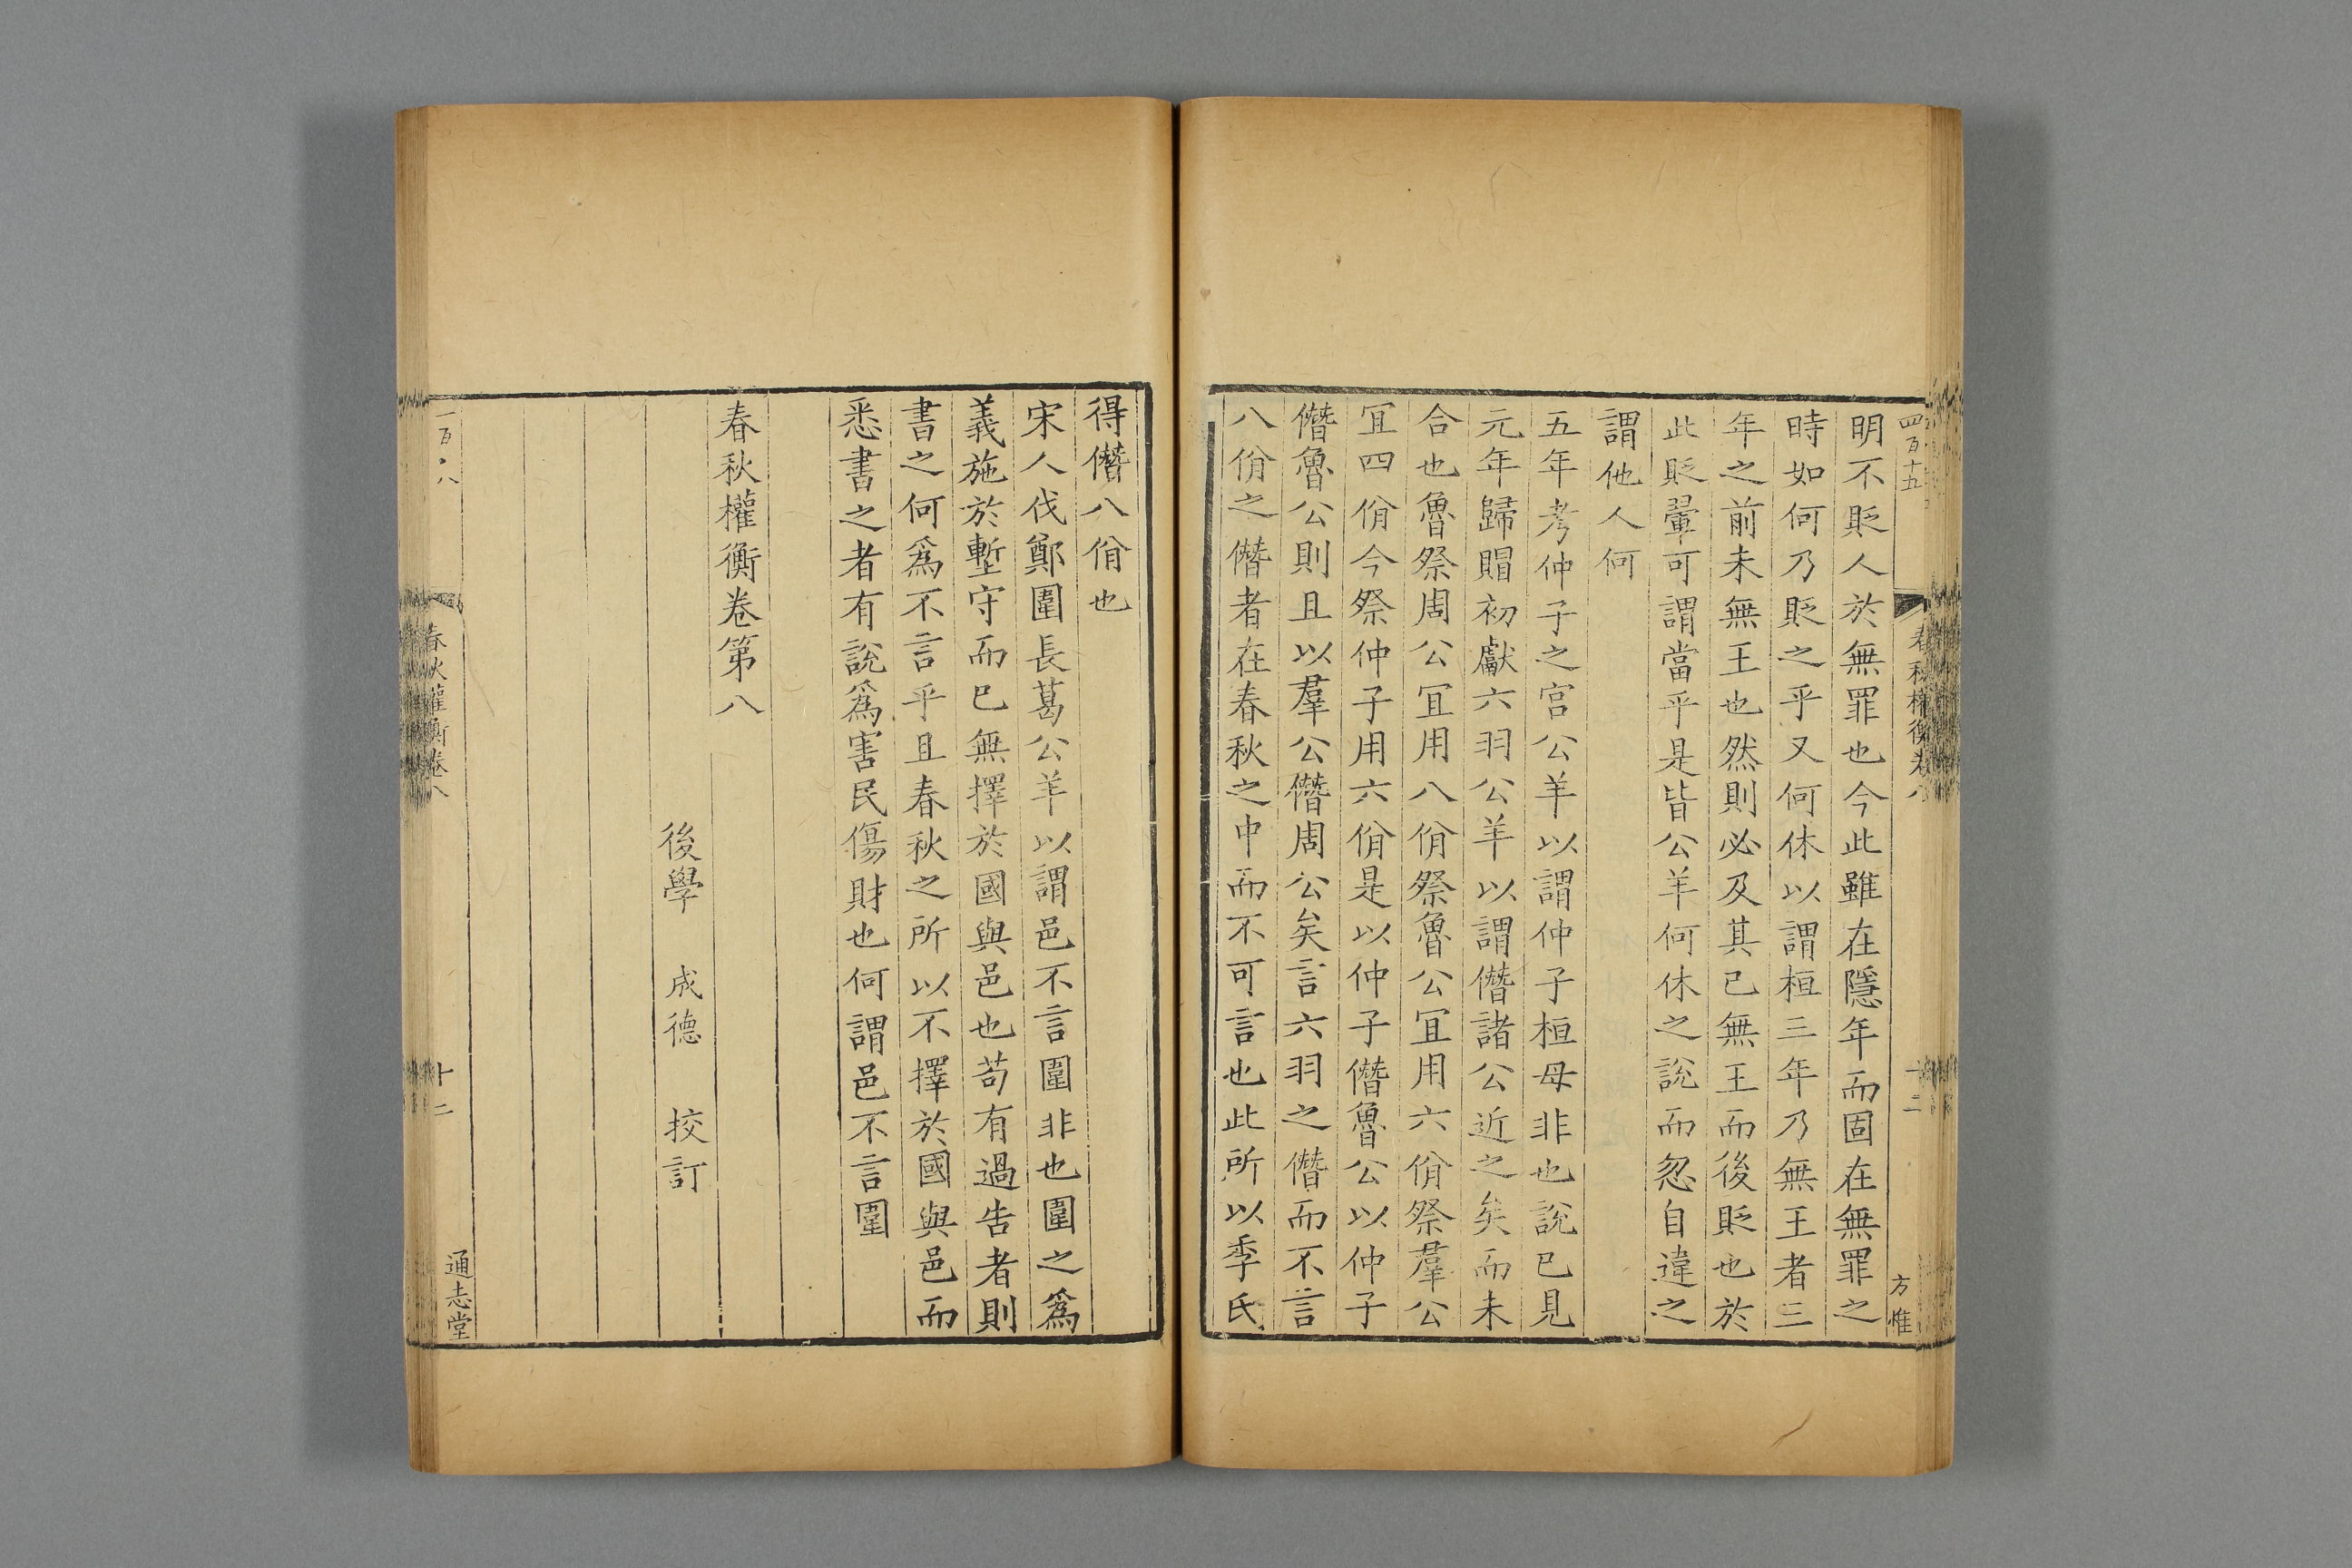 四百十五
春秋權衡卷八
十二
方惟
明不貶人於無罪也今此雖在隱年而固在無罪之
時如何乃貶之乎又何休以謂桓三年乃無王者三
年之前未無王也然則必及其已無王而後貶也於
此貶翬可謂當乎是皆公羊何休之說而忽自違之
謂他人何
五年考仲子之宫公羊以謂仲子桓母非也說已見
元年歸賵初獻六羽公羊以謂僭諸公近之矣而未
合也魯祭周公冝用八佾祭魯公冝用六佾祭羣公
冝四佾今祭仲子用六佾是以仲子僭魯公以仲子
僭魯公則且以羣公僭周公矣言六羽之僭而不言
八佾之僭者在春秋之中而不可言也此所以季氏
得僭八佾也
宋人伐鄭圍長葛公羊以謂邑不言圍非也圍之爲
義施於塹守而已無擇於國與邑也苟有過告者則
書之何爲不言乎且春秋之所以不擇於國與邑而
悉書之者有說爲害民傷財也何謂邑不言圍
春秋權衡卷第八
後學 成德 挍訂
一百八
春秋權衡卷八
十二
通志堂